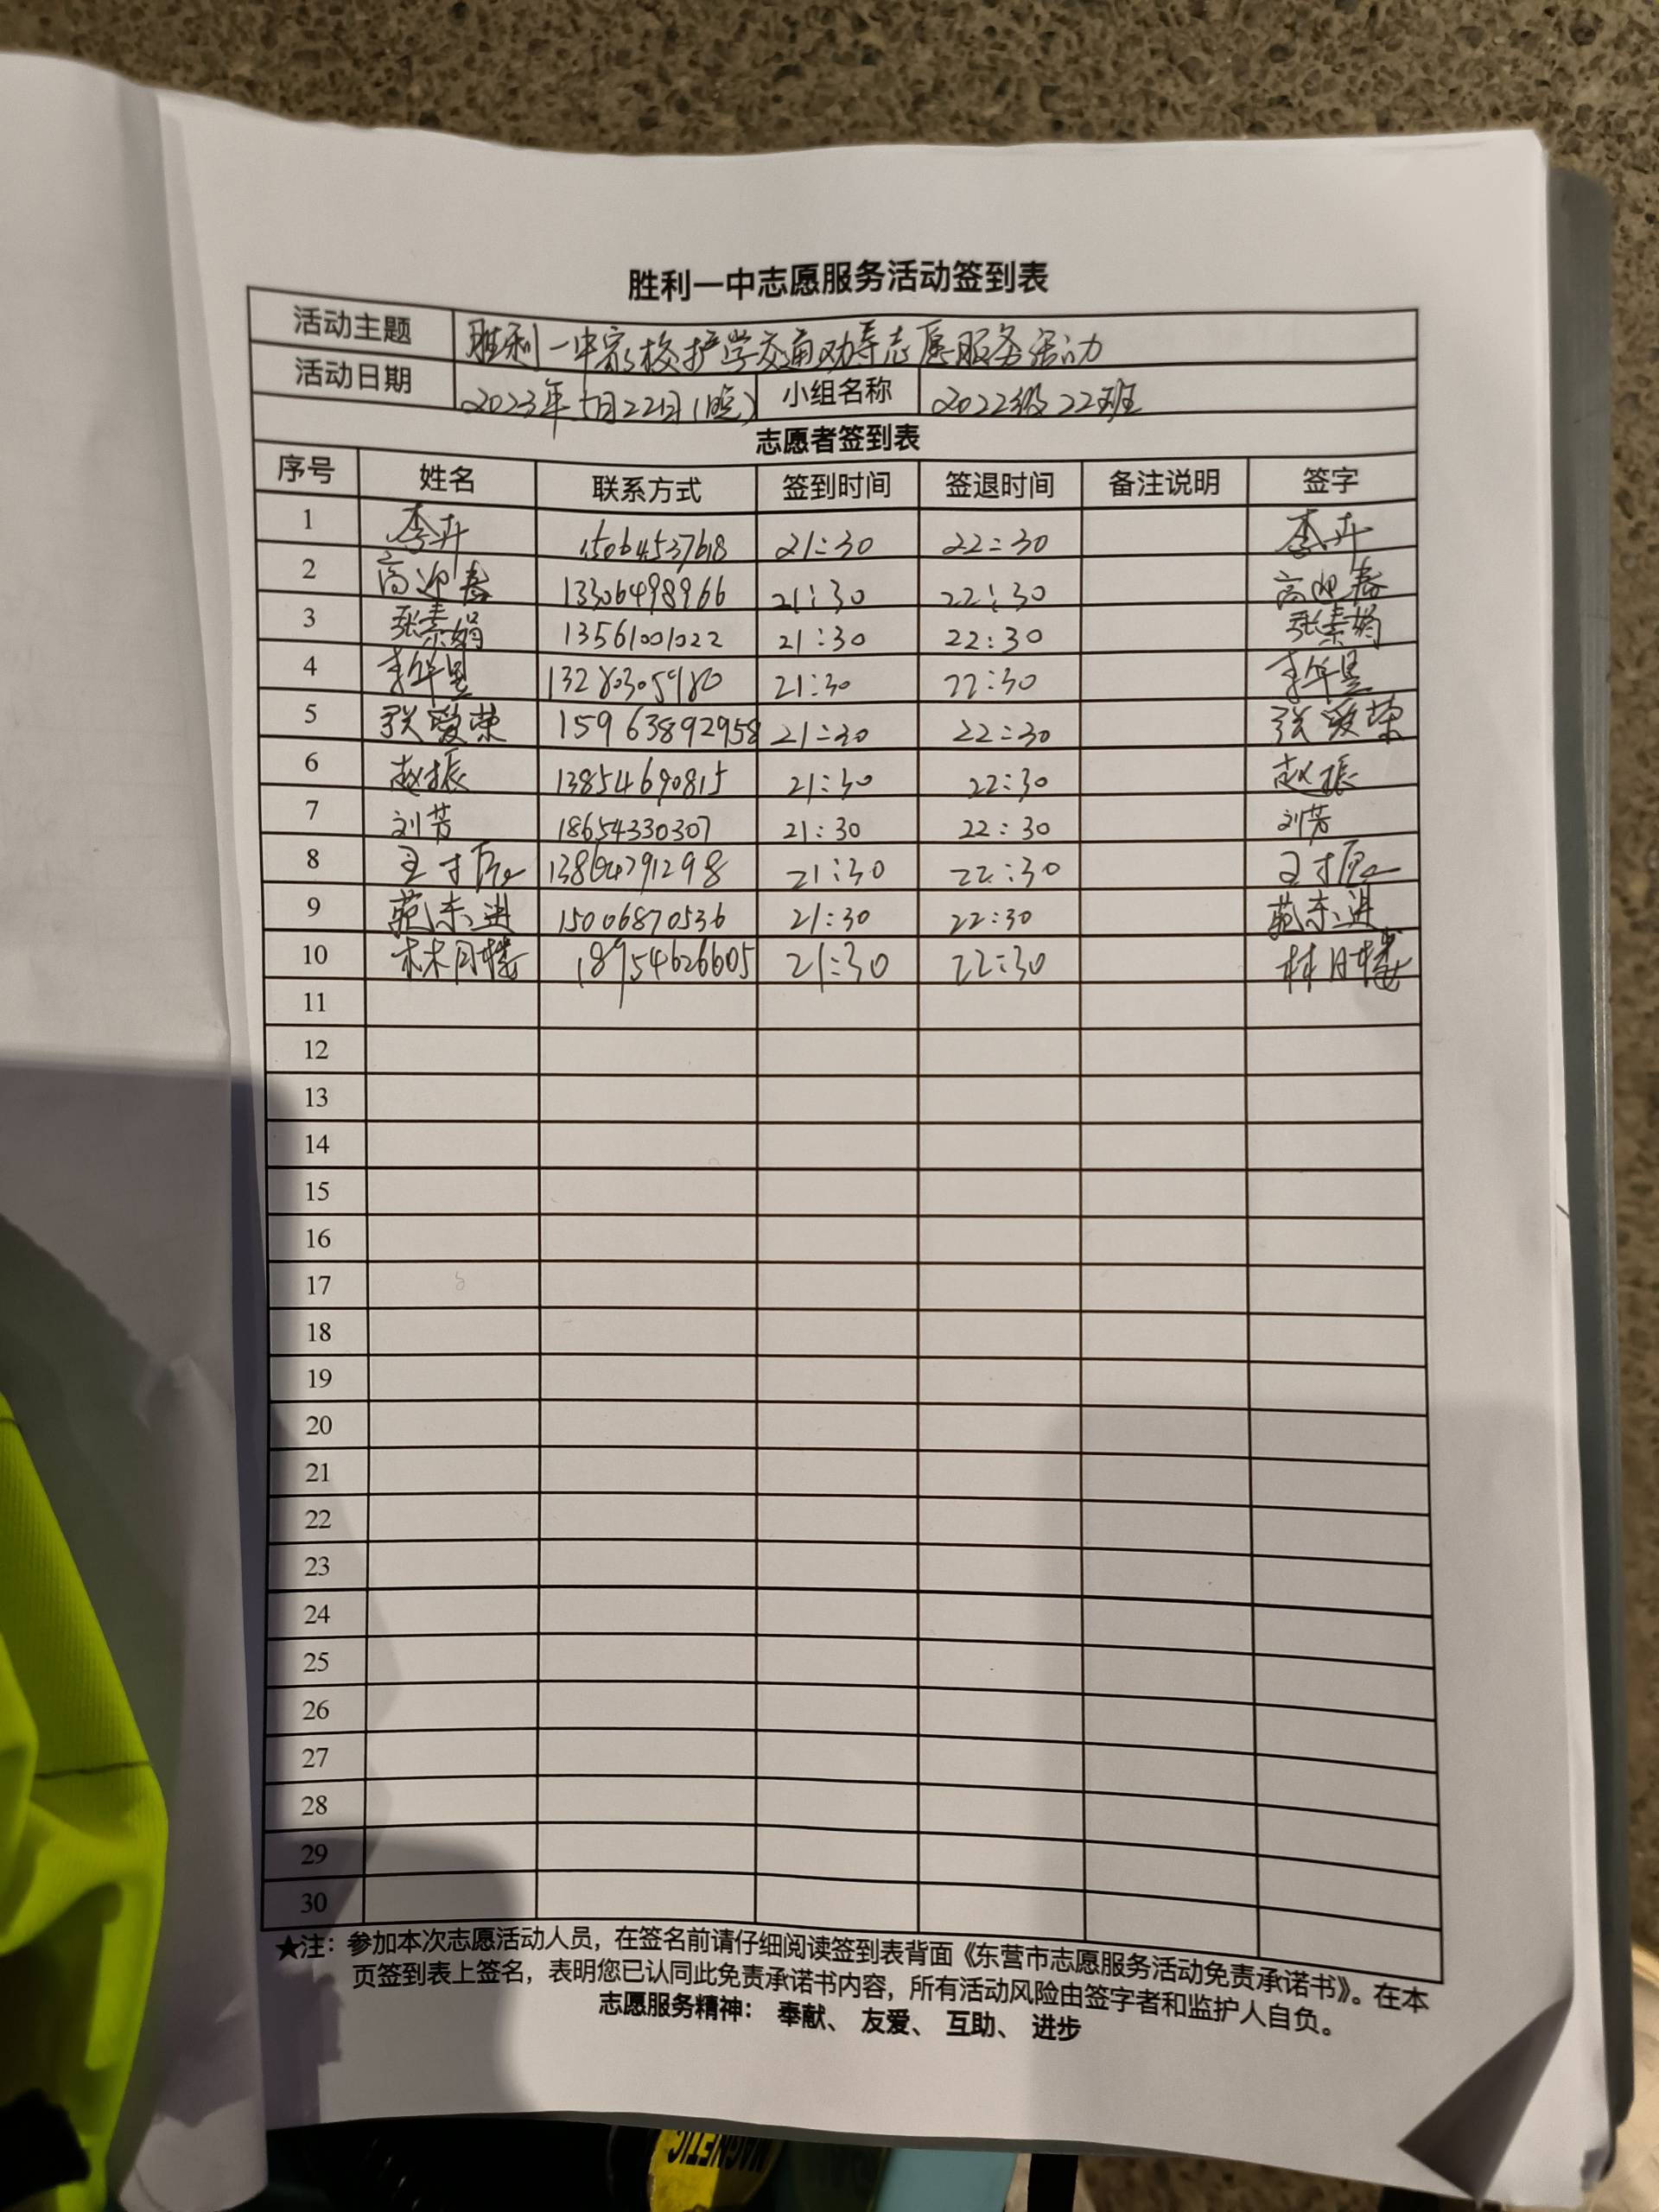 胜利一中志愿服务活动签到表
活动主题 胜利一中家校护学交通劝导志愿服务活动
活动日期 2023年5月22日(晚) 小组名称 2022级22班
志愿者签到表
序号 姓名 联系方式 签到时间 签退时间 备注说明 签字
1 李卉 15064537618 21:30 22:30 李卉
2 高迎春 13306498966 21:30 22:30 高迎春
3 张素娟 13561001022 21:30 22:30 张素娟
4 李华星 13280305980 21:30 22:30 李华星
5 张爱荣 15963892958 21:30 22:30 张爱荣
6 赵振 13854690815 21:30 22:30 赵振
7 刘芳 18654330307 21:30 22:30 刘芳
8 21:30 22:30
9 东进 15006870536 21:30 22:30 东进
10 林月楼 18954626605 21:30 22:30 林月楼
11
12
13
14
15
16
17
18
19
20
21
22
23
24
25
26
27
28
29
30
★注：参加本次志愿活动人员，在签名前请仔细阅读签到表背面《东营市志愿服务活动免责承诺书》。在本
页签到表上签名，表明您已认同此免责承诺书内容，所有活动风险由签字者和监护人自负。
志愿服务精神： 奉献、 友爱、 互助、 进步
MAGNETIC